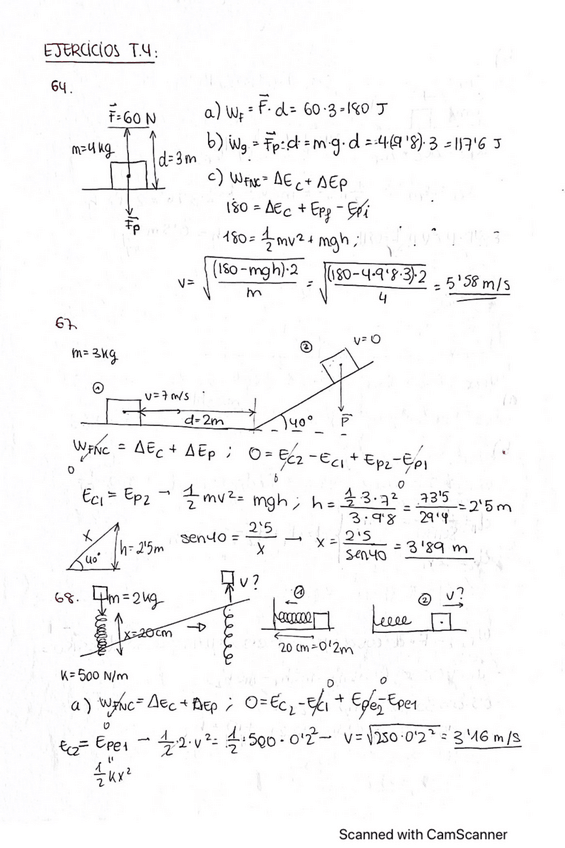 EJERCICIOS T.4:
64.
F⃗=60 N
m=4kg
d=3m
F⃗p
a) WF = F⃗·d = 60·3=180 J
b) Wg = F⃗p·d = m·g·d = -4·(9'8)·3 = 117'6 J
c) WFNC = ΔEc + ΔEp
180 = ΔEc + Epf - Epi
180 = 1/2 mv² + mgh;
v = √((180-mgh)·2/m) = √((180-4·9'8·3)·2/4) = 5'58 m/s
67.
m=3kg
① v=7m/s
d=2m
② v=0
40°
P⃗
WFNC = ΔEc + ΔEp ; 0=Ec2 - Ec1 + Ep2 - Ep1
0 0 0
Ec1 = Ep2 → 1/2 mv² = mgh ; h = (1/2 3·7²)/(3·9'8) = 73'5/29'4 = 2'5 m
x
40°
h=2'5m
sen40 = 2'5/x → x = 2'5/sen40 = 3'89 m
68.
m=2kg
x=20cm
v?
①
20 cm=0'2m
② v?
K=500 N/m
a) WFNC = ΔEc + ΔEp ; 0=Ec2 - Ec1 + Epe2 - Epe1
0 0 0
Ec2 = Epe1 → 1/2·2·v² = 1/2·500·0'2² → v=√(250·0'2²) = 3'16 m/s
"
1/2 Kx²
Scanned with CamScanner